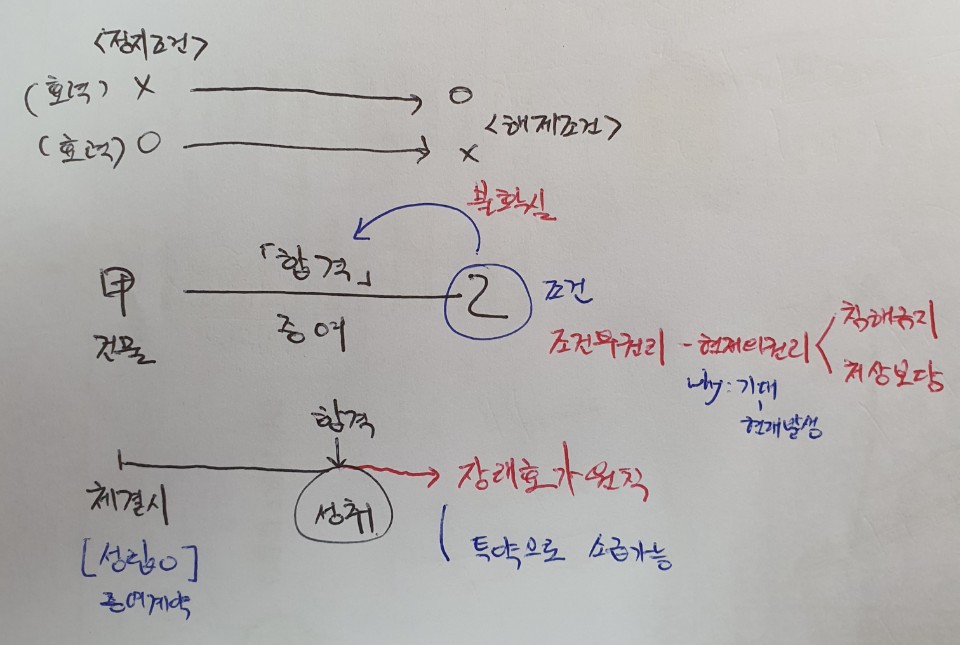 <정지조건>
(효력) X → O
(효력) O → X
<해제조건>
불확실
甲 「합격」 乙 조건
건물 증여
조건부권리 - 현재의권리 < 침해금지
처상보담
why : 기대
현재발생
합격
체결시 성취 장래효가 원칙
[성립O] 특약으로 소급가능
증여계약